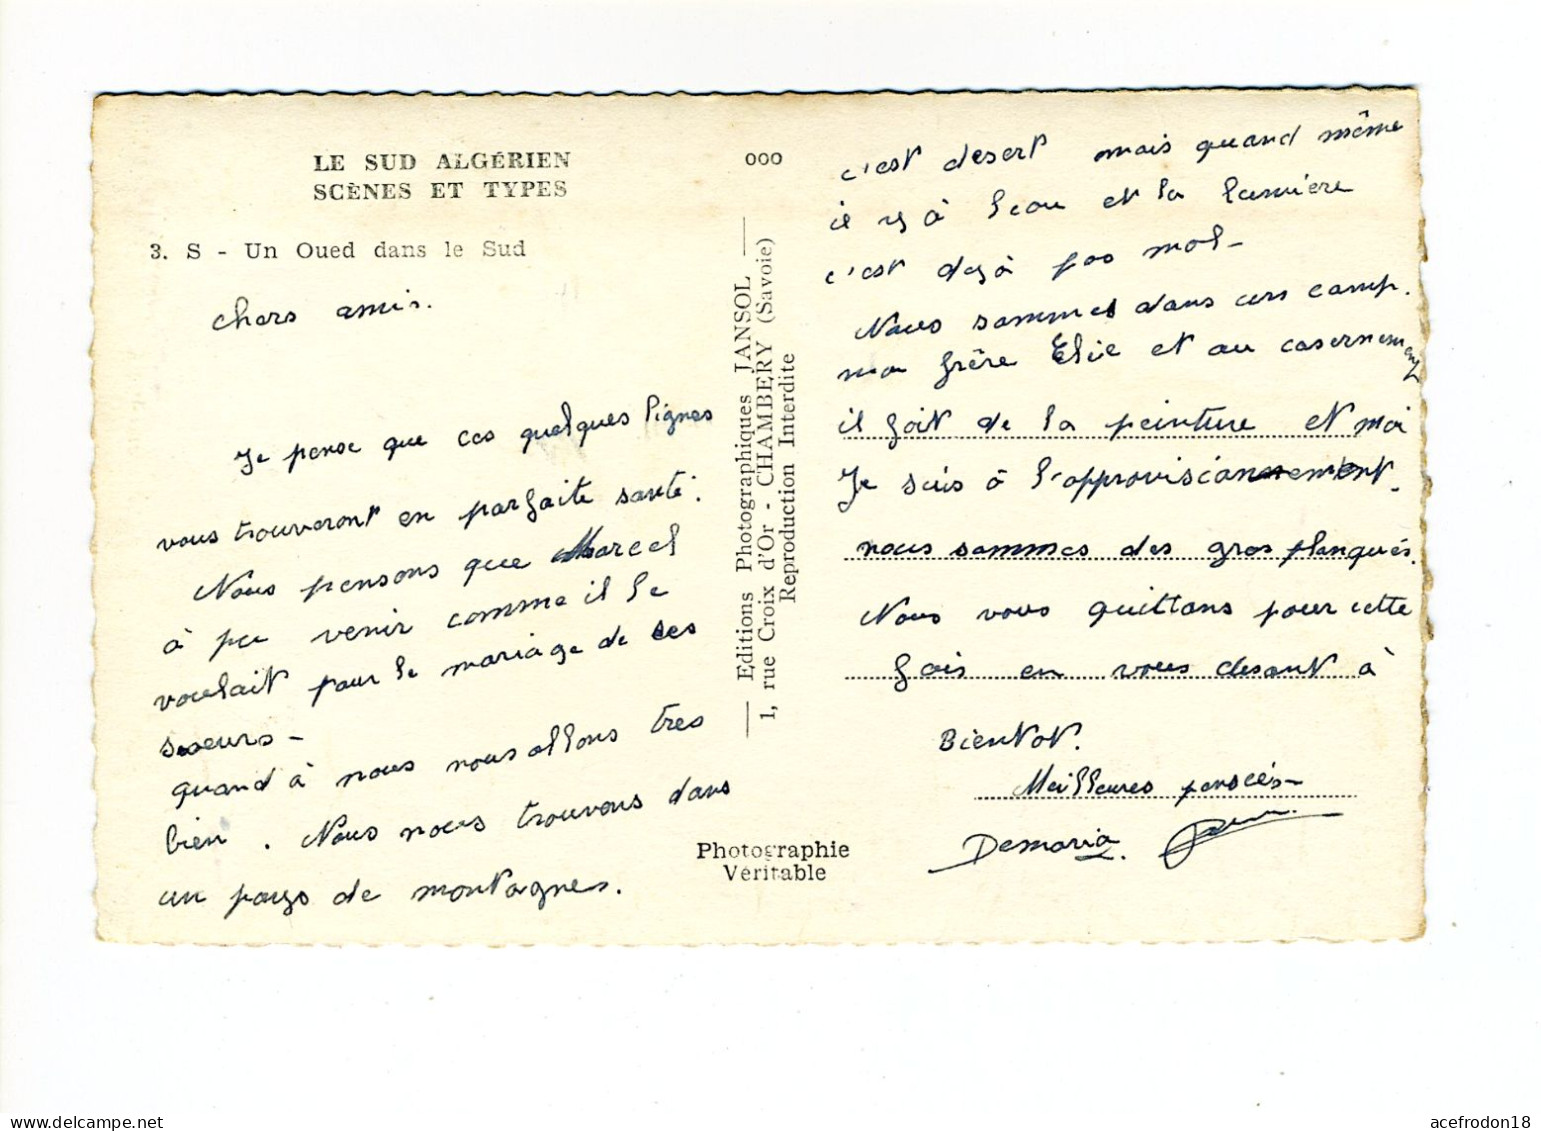 LE SUD ALGÉRIEN
SCÈNES ET TYPES
3. S - Un Oued dans le Sud
chers amis.
Je pense que ces quelques lignes
vous trouveront en parfaite santé.
Nous pensons que Marcel
à pu venir comme il le
voulait pour le mariage de ses
soeurs -
quand à nous nous allons tres
bien. Nous nous trouvons dans
un pays de montagnes.
000
Editions Photographiques JANSOL
1, rue Croix d'Or - CHAMBERY (Savoie)
Reproduction Interdite
Photographie
Véritable
c'est desert mais quand même
il y à l'eau et la lumiere
c'est dejà pas mal -
Nous sommes dans un camp.
mon frère Elie et au casernement
il fait de la peinture et moi
Je suis à l'approvisionnement.
nous sommes des gros planqués.
Nous vous quittons pour cette
fois en vous desant à
Bientot.
Meilleures pensées -
Demaria
acefrodon18